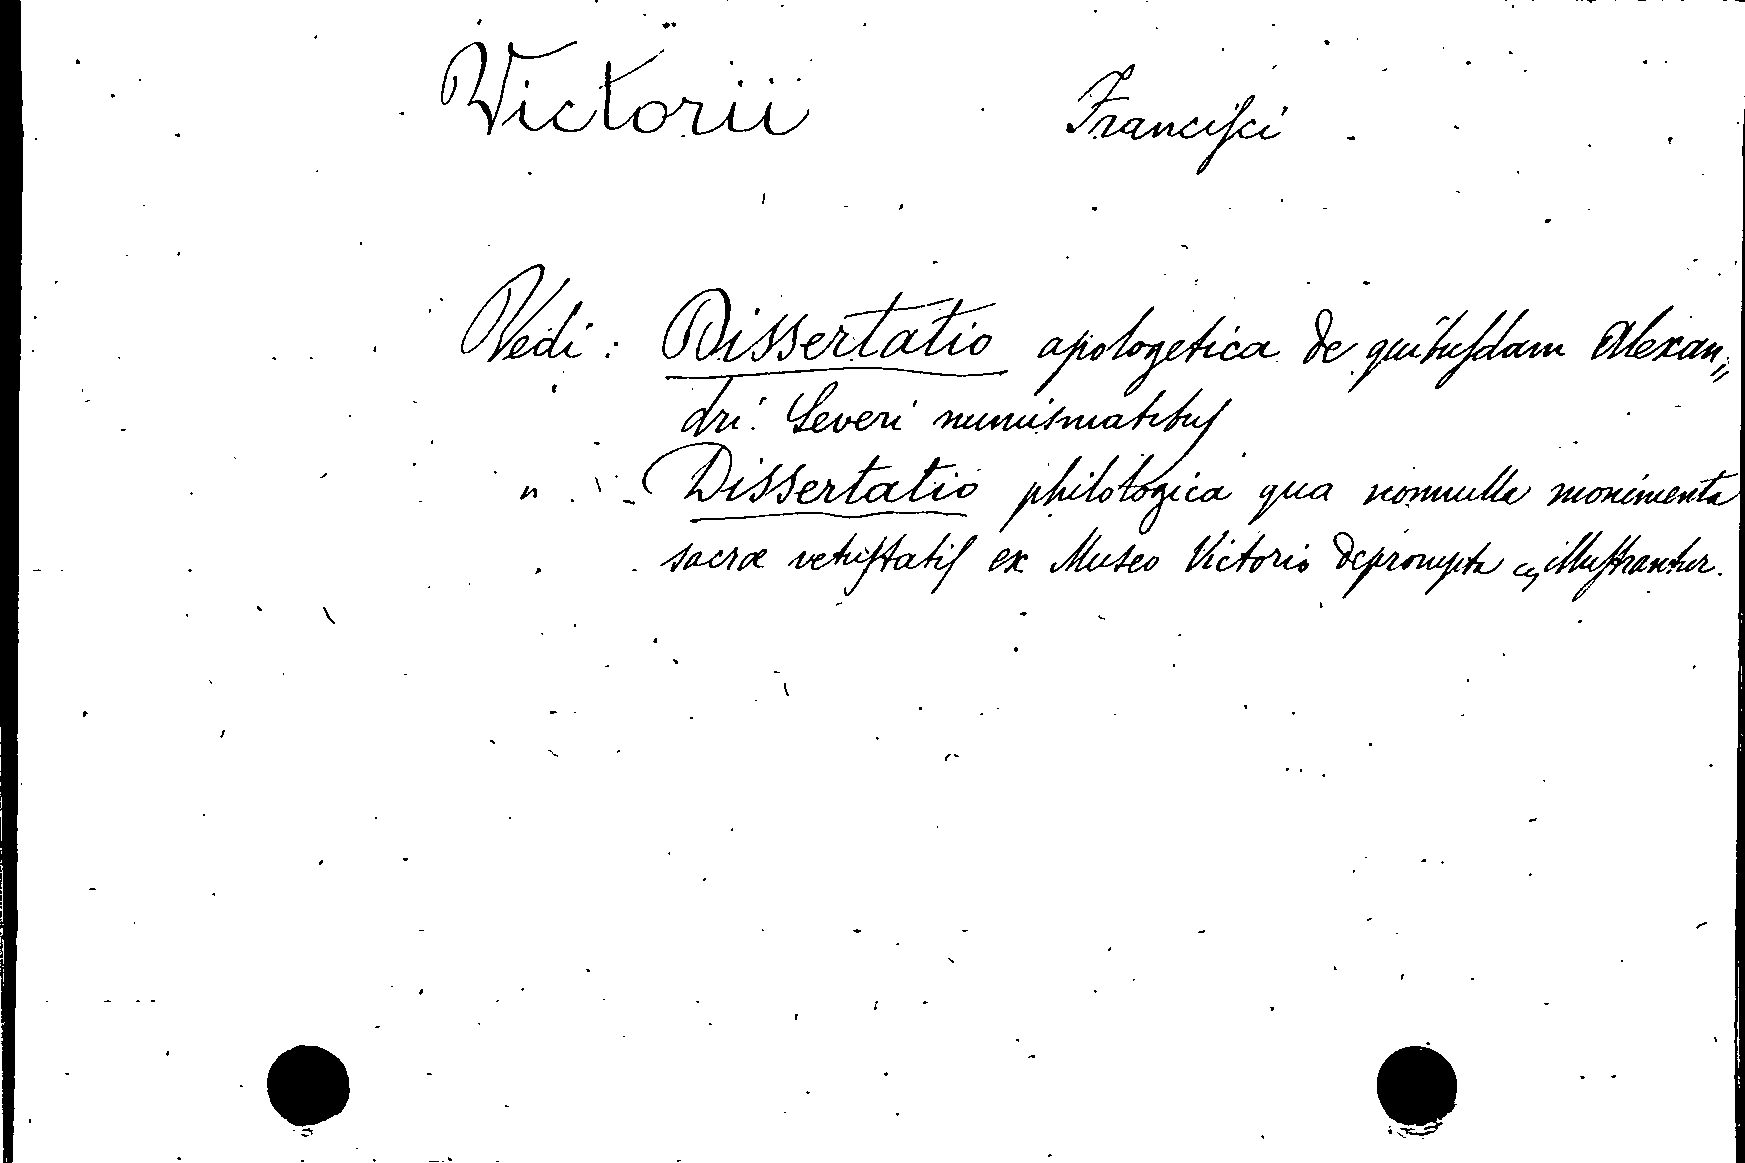 Victorii Franciſci
Vedi: Dissertatio apologetica de quibuſdam Alexan„
dri Severi numismatibuſ
" Dissertatio philologica qua nonnulla monimenta
sacræ vetuſtatiſ ex Museo Victorio deprompta illuſtrantur.